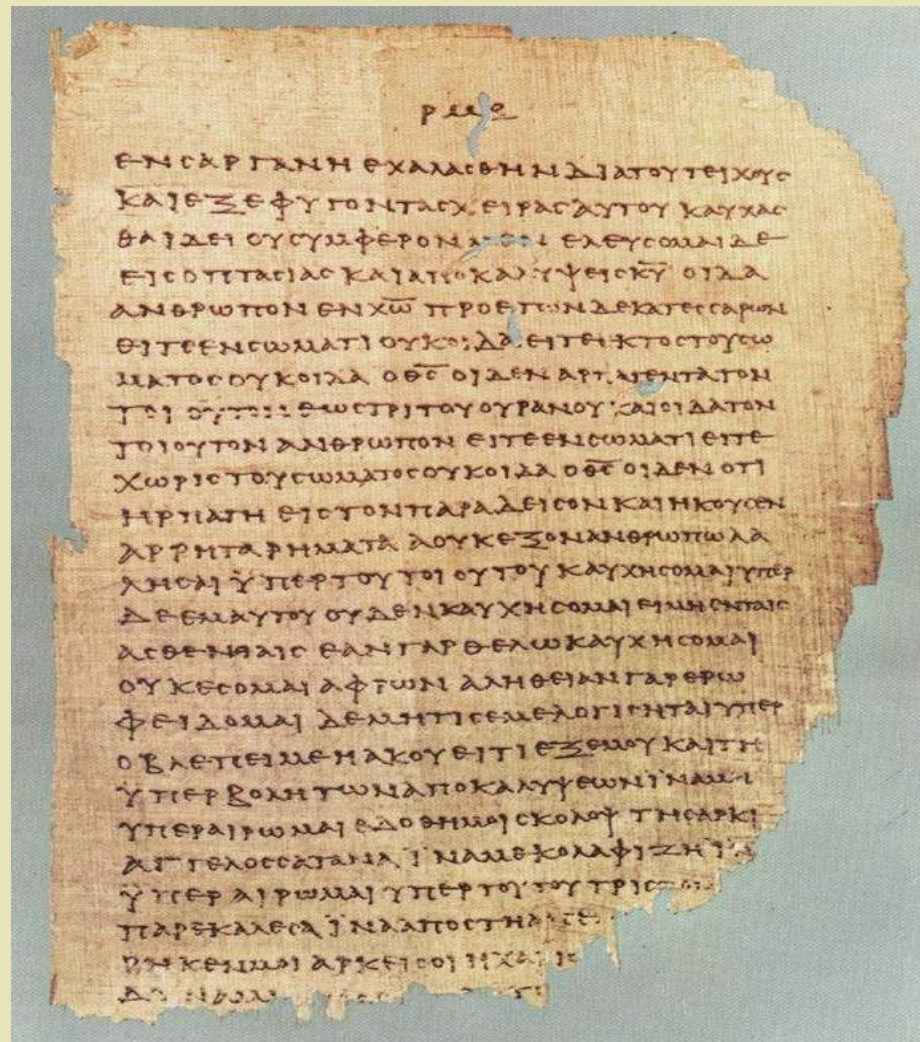 ΡΜΕ
ΕΝ ΣΑΡΓΑΝΗ ΕΧΑΛΑΣΘΗΝ ΔΙΑ ΤΟΥ ΤΕΙΧΟΥΣ
ΚΑΙ ΕΞΕΦΥΓΟΝ ΤΑΣ ΧΕΙΡΑΣ ΑΥΤΟΥ ΚΑΥΧΑΣ
ΘΑΙ ΔΕΙ ΟΥ ΣΥΜΦΕΡΟΝ ΜΕΝ ΕΛΕΥΣΟΜΑΙ ΔΕ
ΕΙΣ ΟΠΤΑΣΙΑΣ ΚΑΙ ΑΠΟΚΑΛΥΨΕΙΣ ΚΥ ΟΙΔΑ
ΑΝΘΡΩΠΟΝ ΕΝ ΧΩ ΠΡΟ ΕΤΩΝ ΔΕΚΑΤΕΣΣΑΡΩΝ
ΕΙΤΕ ΕΝ ΣΩΜΑΤΙ ΟΥΚ ΟΙΔΑ ΕΙΤΕ ΕΚΤΟΣ ΤΟΥ ΣΩ
ΜΑΤΟΣ ΟΥΚ ΟΙΔΑ Ο ΘΣ ΟΙΔΕΝ ΑΡΠΑΓΕΝΤΑ ΤΟΝ
ΤΟΙΟΥΤΟΝ ΕΩΣ ΤΡΙΤΟΥ ΟΥΡΑΝΟΥ ΚΑΙ ΟΙΔΑ ΤΟΝ
ΤΟΙΟΥΤΟΝ ΑΝΘΡΩΠΟΝ ΕΙΤΕ ΕΝ ΣΩΜΑΤΙ ΕΙΤΕ
ΧΩΡΙΣ ΤΟΥ ΣΩΜΑΤΟΣ ΟΥΚ ΟΙΔΑ Ο ΘΣ ΟΙΔΕΝ ΟΤΙ
ΗΡΠΑΓΗ ΕΙΣ ΤΟΝ ΠΑΡΑΔΕΙΣΟΝ ΚΑΙ ΗΚΟΥΣΕΝ
ΑΡΡΗΤΑ ΡΗΜΑΤΑ Α ΟΥΚ ΕΞΟΝ ΑΝΘΡΩΠΩ ΛΑ
ΛΗΣΑΙ ΫΠΕΡ ΤΟΥ ΤΟΙΟΥΤΟΥ ΚΑΥΧΗΣΟΜΑΙ ΥΠΕΡ
ΔΕ ΕΜΑΥΤΟΥ ΟΥΔΕΝ ΚΑΥΧΗΣΟΜΑΙ ΕΙ ΜΗ ΕΝ ΤΑΙΣ
ΑΣΘΕΝΕΙΑΙΣ ΕΑΝ ΓΑΡ ΘΕΛΩ ΚΑΥΧΗΣΟΜΑΙ
ΟΥΚ ΕΣΟΜΑΙ ΑΦΡΩΝ ΑΛΗΘΕΙΑΝ ΓΑΡ ΕΡΩ
ΦΕΙΔΟΜΑΙ ΔΕ ΜΗ ΤΙΣ ΕΜΕ ΛΟΓΙΣΗΤΑΙ ΥΠΕΡ
Ο ΒΛΕΠΕΙ ΜΕ Η ΑΚΟΥΕΙ ΤΙ ΕΞ ΕΜΟΥ ΚΑΙ ΤΗ
ΫΠΕΡΒΟΛΗ ΤΩΝ ΑΠΟΚΑΛΥΨΕΩΝ ΙΝΑ ΜΗ
ΥΠΕΡΑΙΡΩΜΑΙ ΕΔΟΘΗ ΜΟΙ ΣΚΟΛΟΨ ΤΗ ΣΑΡΚΙ
ΑΓΓΕΛΟΣ ΣΑΤΑΝΑ ΪΝΑ ΜΕ ΚΟΛΑΦΙΖΗ
ΫΠΕΡΑΙΡΩΜΑΙ ΥΠΕΡ ΤΟΥΤΟΥ ΤΡΙΣ
ΠΑΡΕΚΑΛΕΣΑ ΪΝΑ ΑΠΟΣΤΗ
ΡΗΚΕΝ ΜΟΙ ΑΡΚΕΙ ΣΟΙ Η ΧΑΡΙΣ